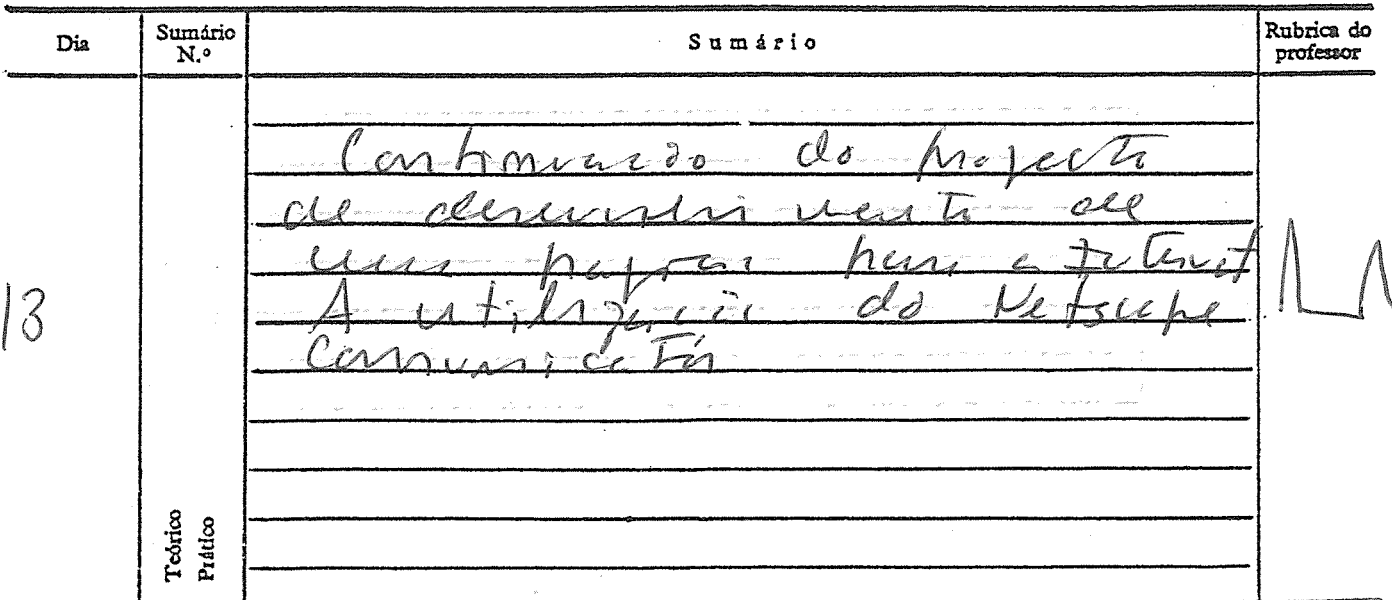 Dia Sumário N.º Sumário Rubrica do professor
Continuação do projecto
de desenvolvimento de
uma página para a Internet
A utilização do Netscape
Comunicator
13
Teórico
Prático